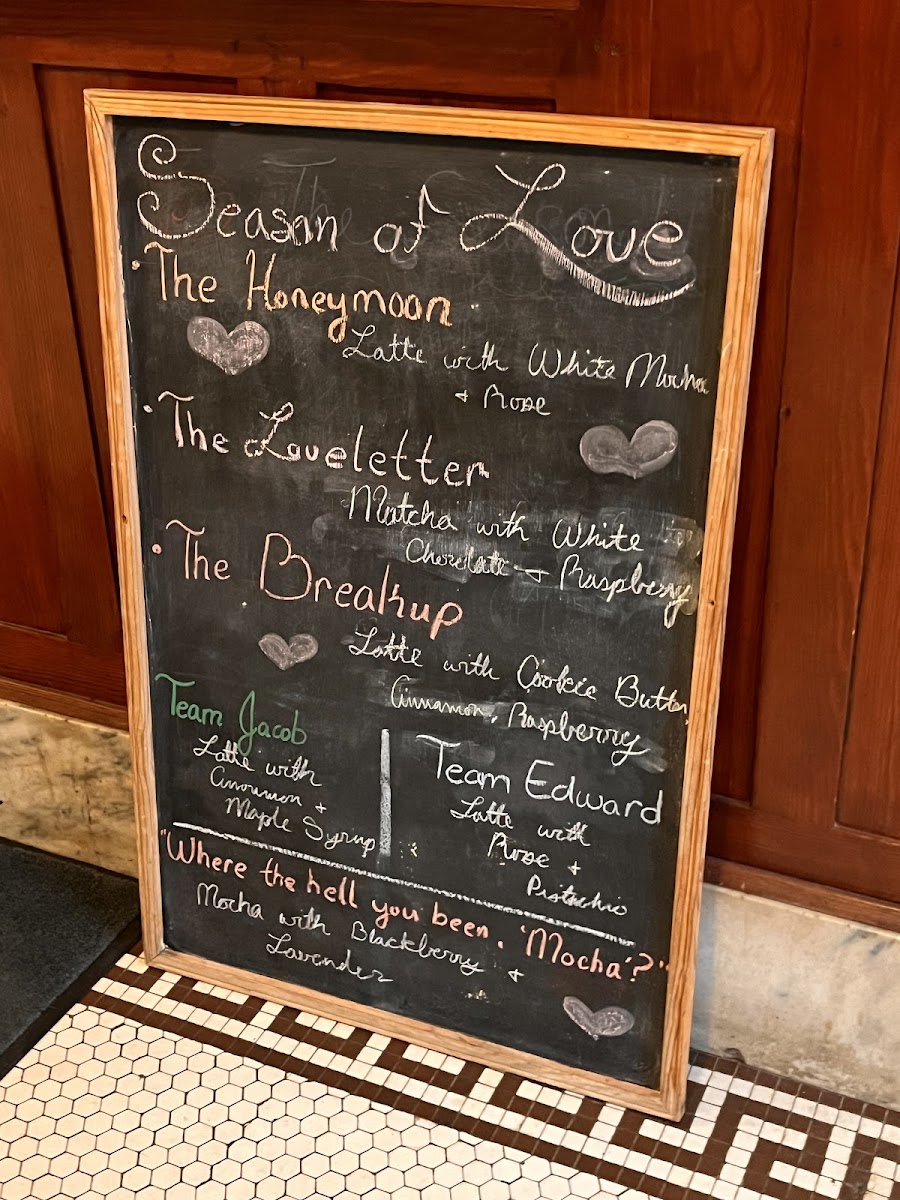 Season of Love
· The Honeymoon
Latte with White Mocha
+ Rose
· The Loveletter
Matcha with White
Chocolate + Raspberry
· The Breakup
Latte with Cookie Butter,
Cinnamon, Raspberry
Team Jacob
Latte with
Cinnamon +
Maple Syrup
Team Edward
Latte with
Rose +
Pistachio
"Where the hell you been, 'Mocha'?"
Mocha with Blackberry +
Lavender